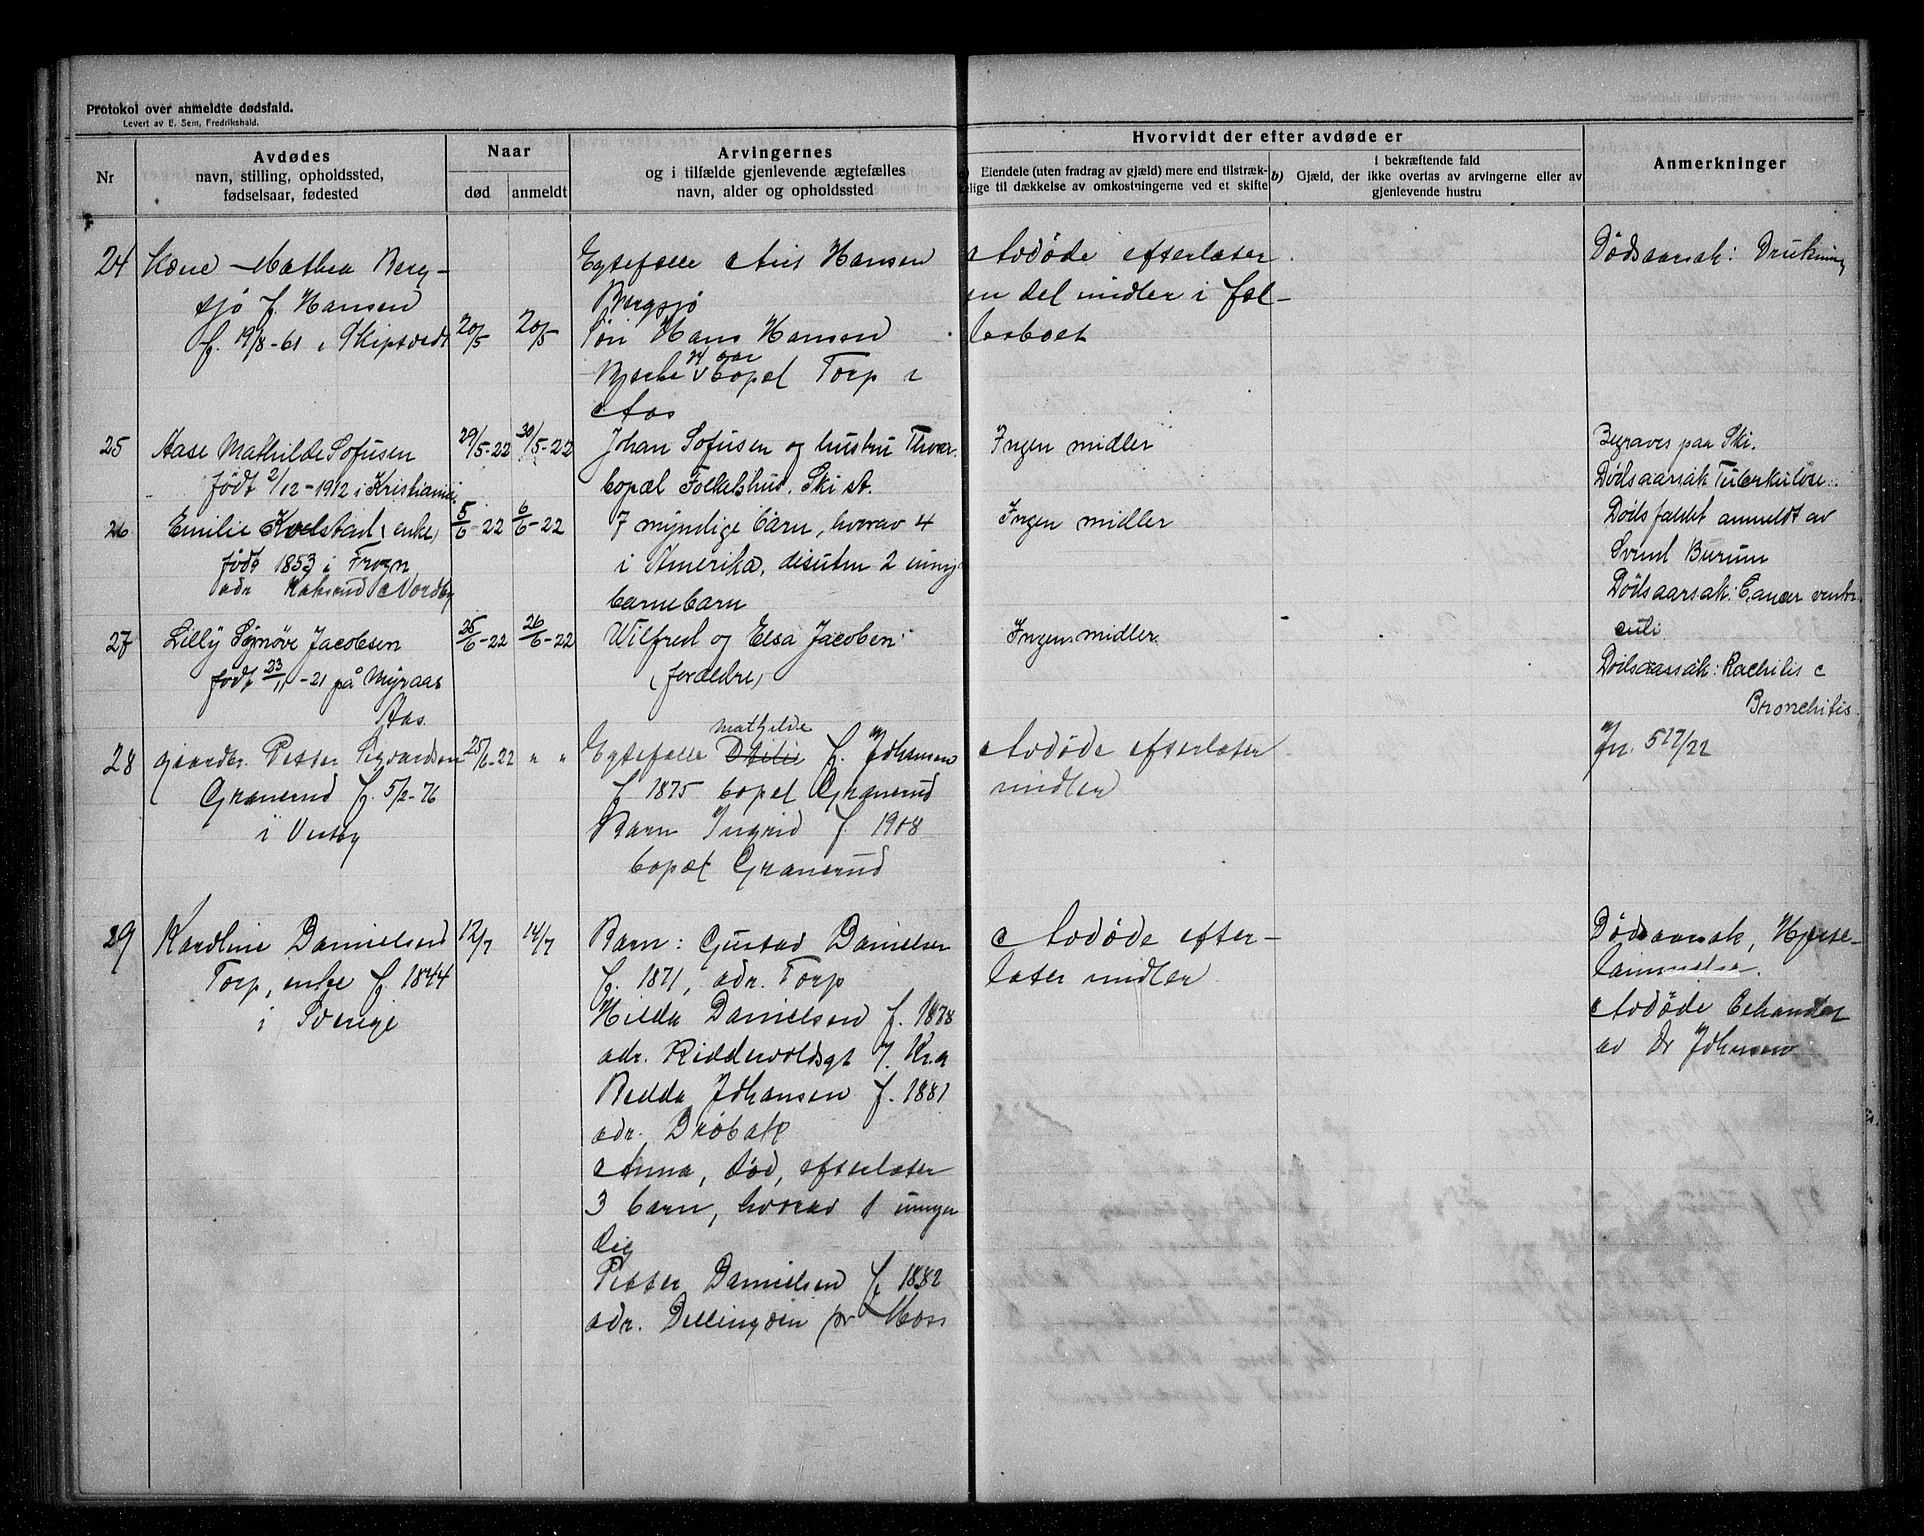 Protokol over anmeldte dødsfald.
Levert av E. Sem, Fredrikshald.
Nr
Avdødes
navn, stilling, opholdssted,
fødselsaar, fødested
Naar
død
anmeldt
Arvingernes
og i tilfælde gjenlevende ægtefælles
navn, alder og opholdssted
Hvorvidt der efter avdøde er
Eiendele (uten fradrag av gjæld) mere end tilstræk-
lige til dækkelse av omkostningerne ved et skifte
b)
I bekræftende fald
Gjæld, der ikke overtas av arvingerne eller av
gjenlevende hustru
Anmerkninger
24
Mathea Berg-
sjø f. Hansen
f. 19/8-61 i Skiptvedt
20/5
20/5
Egtefælle Hansen
Bergsjø
Søn Hans Hansen
aar bopæl Torp i
Aas
Avdøde efterlater
en del midler i fæl-
lesboet
Dødsaarsak: Drukning
25
Aase Mathilde Sofusen
født 2/12-1912 i Kristiania
29/5-22
30/5-22
Johan Sofusen og hustru
bopæl Folkets hus. Ski st.
Ingen midler
Begraves paa Ski.
Dødsaarsak Tuberkulose
26
Emilie Kvelstad, enke,
født 1853 i Frogn
adr Nordby
5/6-22
6/6-22
7 myndige barn, hvorav 4
i Amerika, desuten 2 umy.
barnebarn
Ingen midler
Dødsfaldet anmeldt av
Burum
Dødsaarsak: Cancer ventri
culi
27
Lilly Synøve Jacobsen
født 23/11-21 på Myraas
Aas.
25/6-22
26/6-22
Wilfred og Elsa Jacobsen
(forældre)
Ingen midler
Dødsaarsak: Rachitis c
Bronchitis
28
gaardbr. Petter Sigvardsen
Granerud f. 5/2-76
i Vestby
25/6-22
" "
Mathilde
Egtefælle f. Johansen
f 1875 bopæl Granerud
Barn Ingrid f. 1908
bopæl Granerud
Avdøde efterlater
midler
Jr. 517/22
29
Karoline Danielsen
Torp, enke f 1844
i Sverige
12/7
14/7
Barn: Gustav Danielsen
f. 1871, adr. Torp
Hilda Danielsen f. 1878
adr. Riddervoldsgt 7. Kr.a
Johansen f. 1881
adr. Drøbak
Anna, død, efterlater
3 barn, hvorav 1 umyn
dig
Petter Danielsen f 1882
adr. Dillingøen pr Moss
Avdøde efter-
later midler
Dødsaarsak, Hjerte-
lammelse.
Avdøde behandlet
av Dr Johnsen